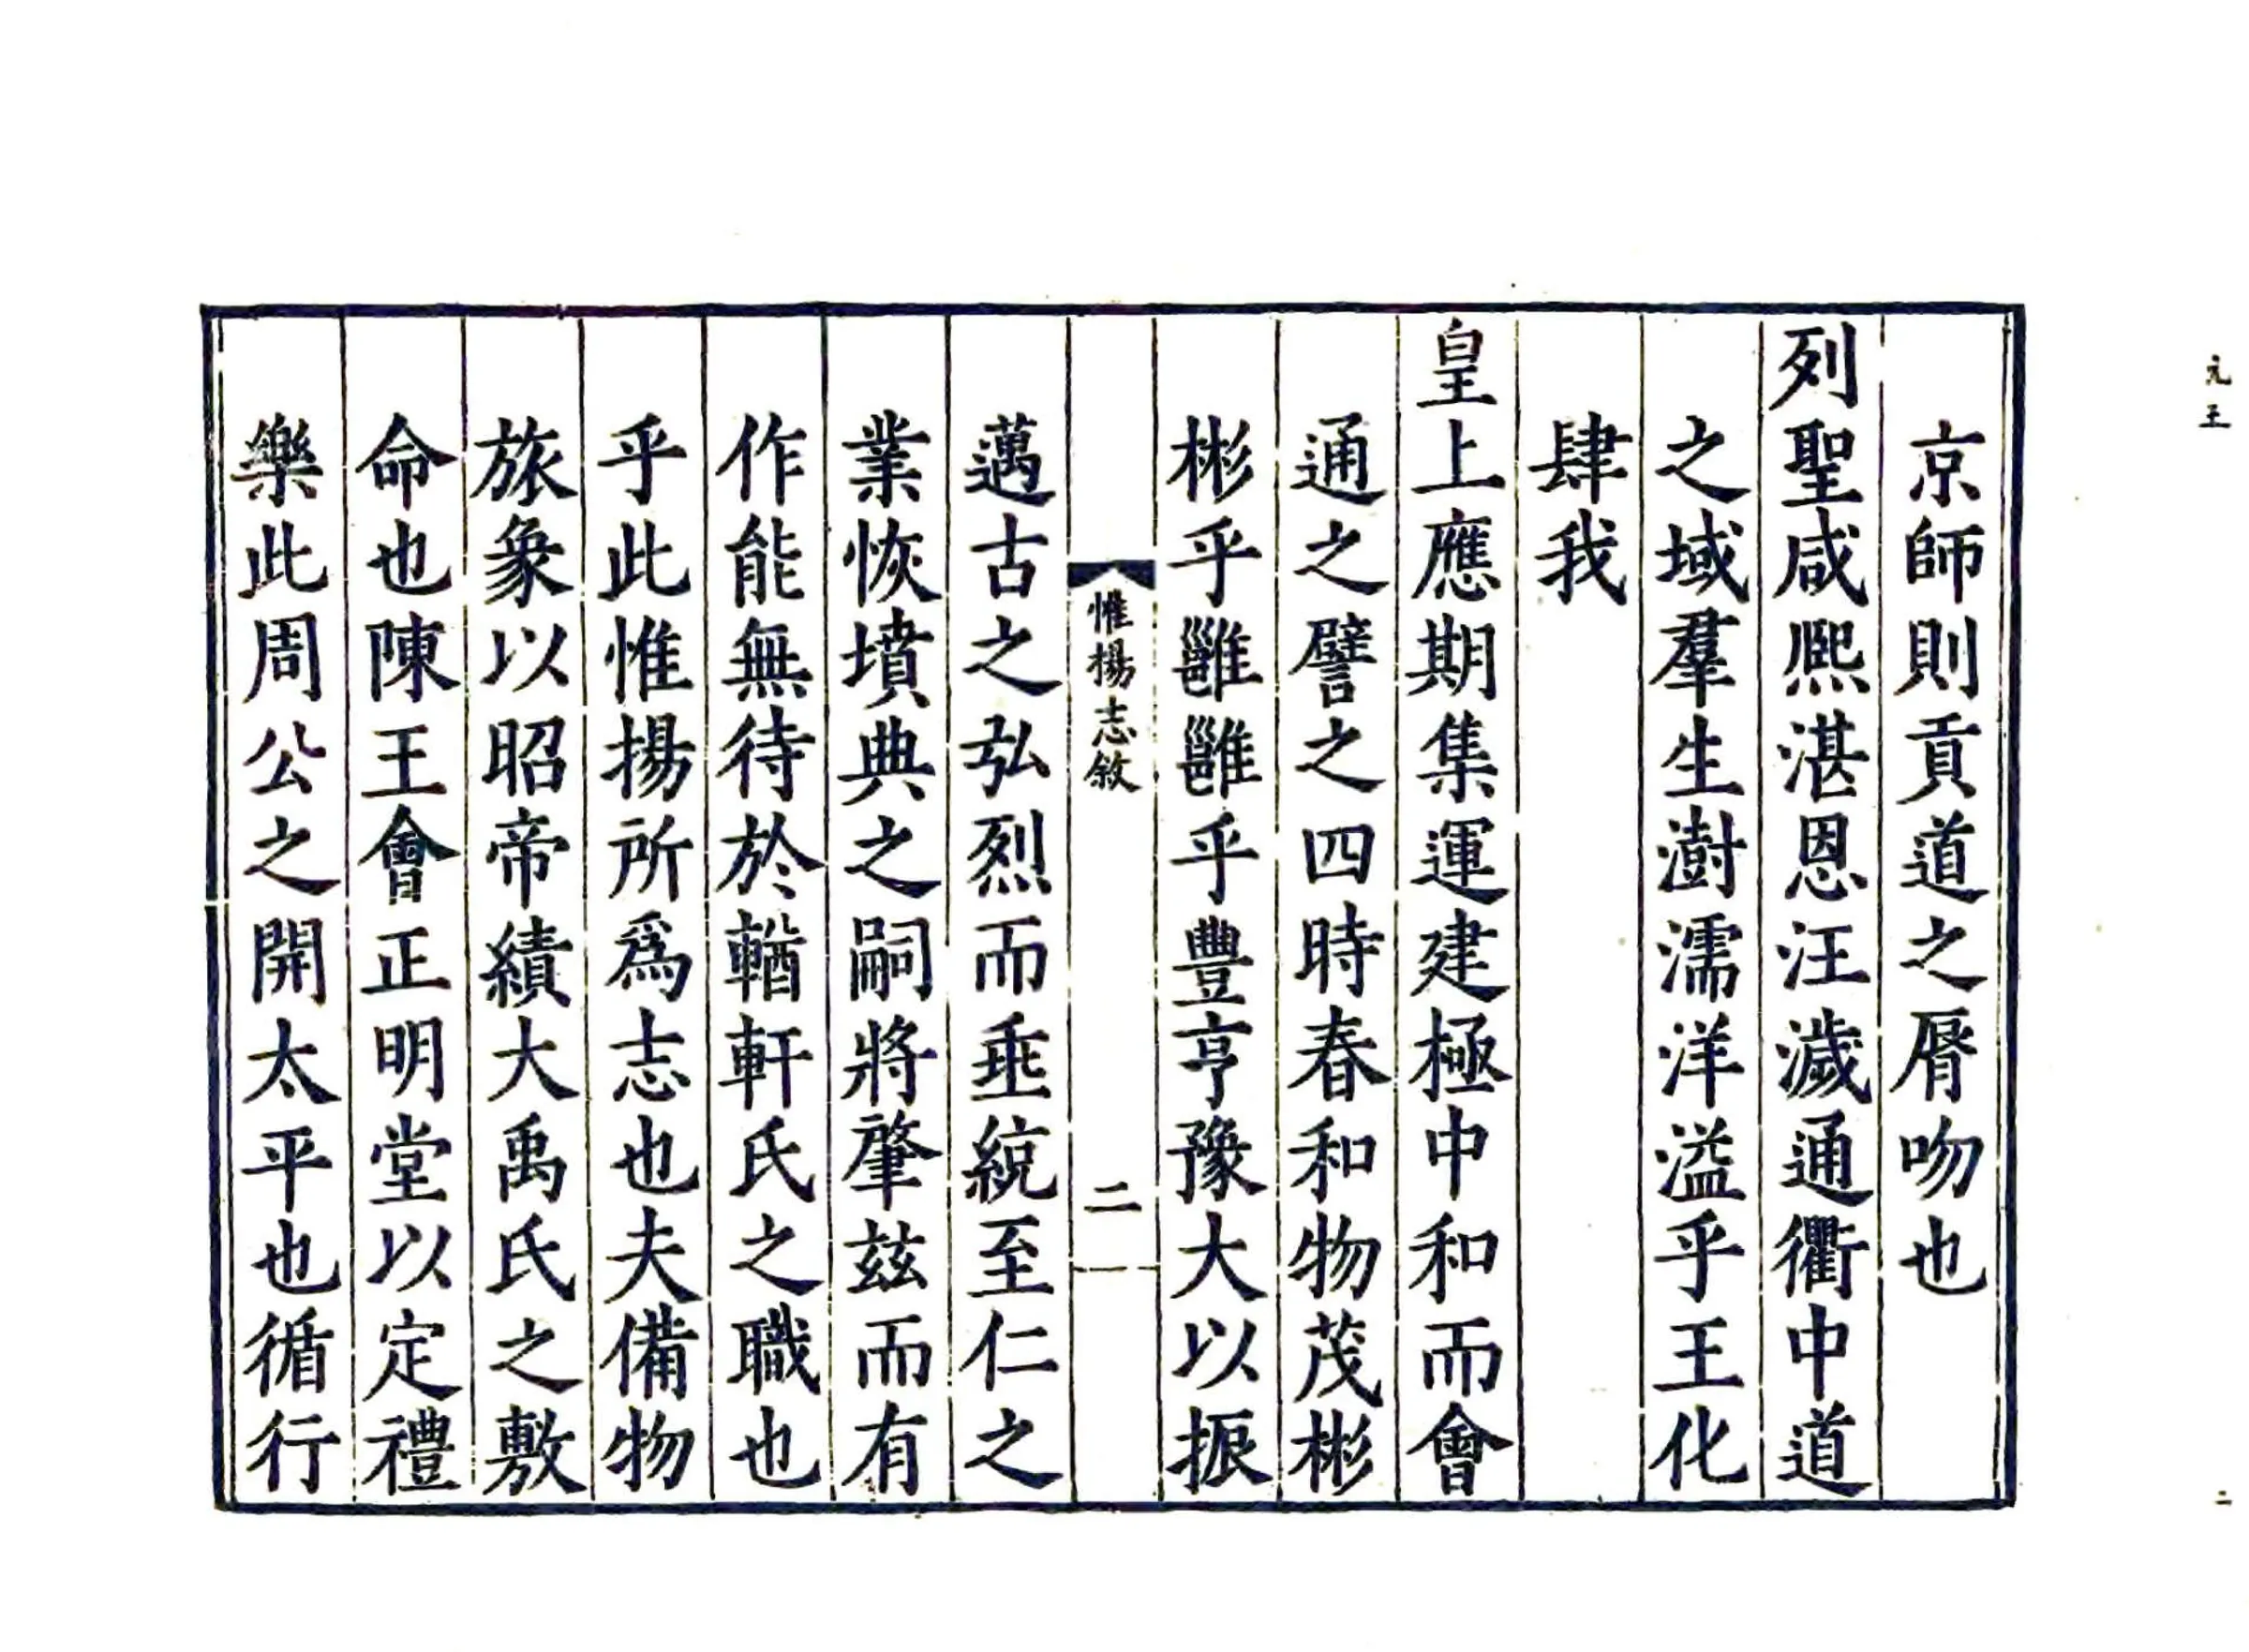 京師則貢道之脣吻也
列聖咸熙湛恩汪濊通衢中道
之域羣生澍濡洋溢乎王化
肆我
皇上應期集運建極中和而會
通之譬之四時春和物茂彬
彬乎雝雝乎豐亨豫大以振
惟揚志敘
二
邁古之弘烈而垂統至仁之
業恢墳典之嗣將肇玆而有
作能無待於輶軒氏之職也
乎此惟揚所爲志也夫備物
旅象以昭帝績大禹氏之敷
命也陳王會正明堂以定禮
樂此周公之開太平也循行
二